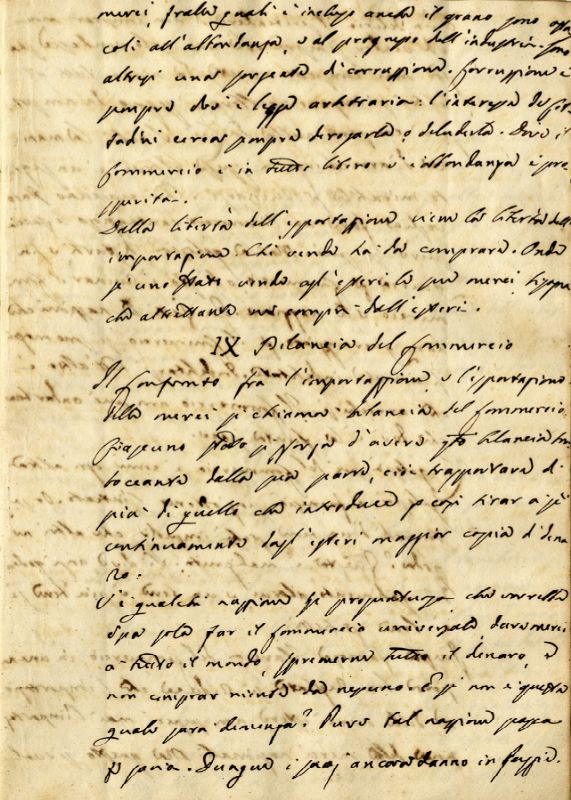 merci, fralle quali è incluso anche il grano sono osta
coli all'abbondanza, e al progresso dell'industria. Sono
altresi una sorgente di corruzzione. Corruzzione è
sempre dov'è legge arbitraria: l'interesse de Cit
tadini cerca sempre derogarla o deluderla. Dove il
Commercio è in tutto libero v'è abbondanza è pro
sperità.
Dalla libertà dell'esportazione viene la libertà dell'
importazione. Chi vende ha da comprare. Onde
se uno Stato vende agl'esteri le sue merci bisogna
che altrettante ne compri dall'esteri.
IX Bilancia del Commercio
Il Confronto fra l'importazzione e l'esportazione
delle merci si chiama bilancia del Commercio.
Ciascuno stato si sforza d'avere qta bilancia tra
boccante dalla sua parte, cioè trasportare di
più di quello che introduce p così tirar a se
continuamente dagl'esteri maggior copia di dena
ro.
V'è qualche nazzione si prosuntuosa che vorrebbe
essa sola far il Commercio universale, dare merci
a tutto il mondo, spremerne tutto il denaro, e
non comprar niente da nessuno. E se non è questa
quale sara demenza? Pure tal nazzione passa
p savia. Dunque i savj ancora danno in pazzie.